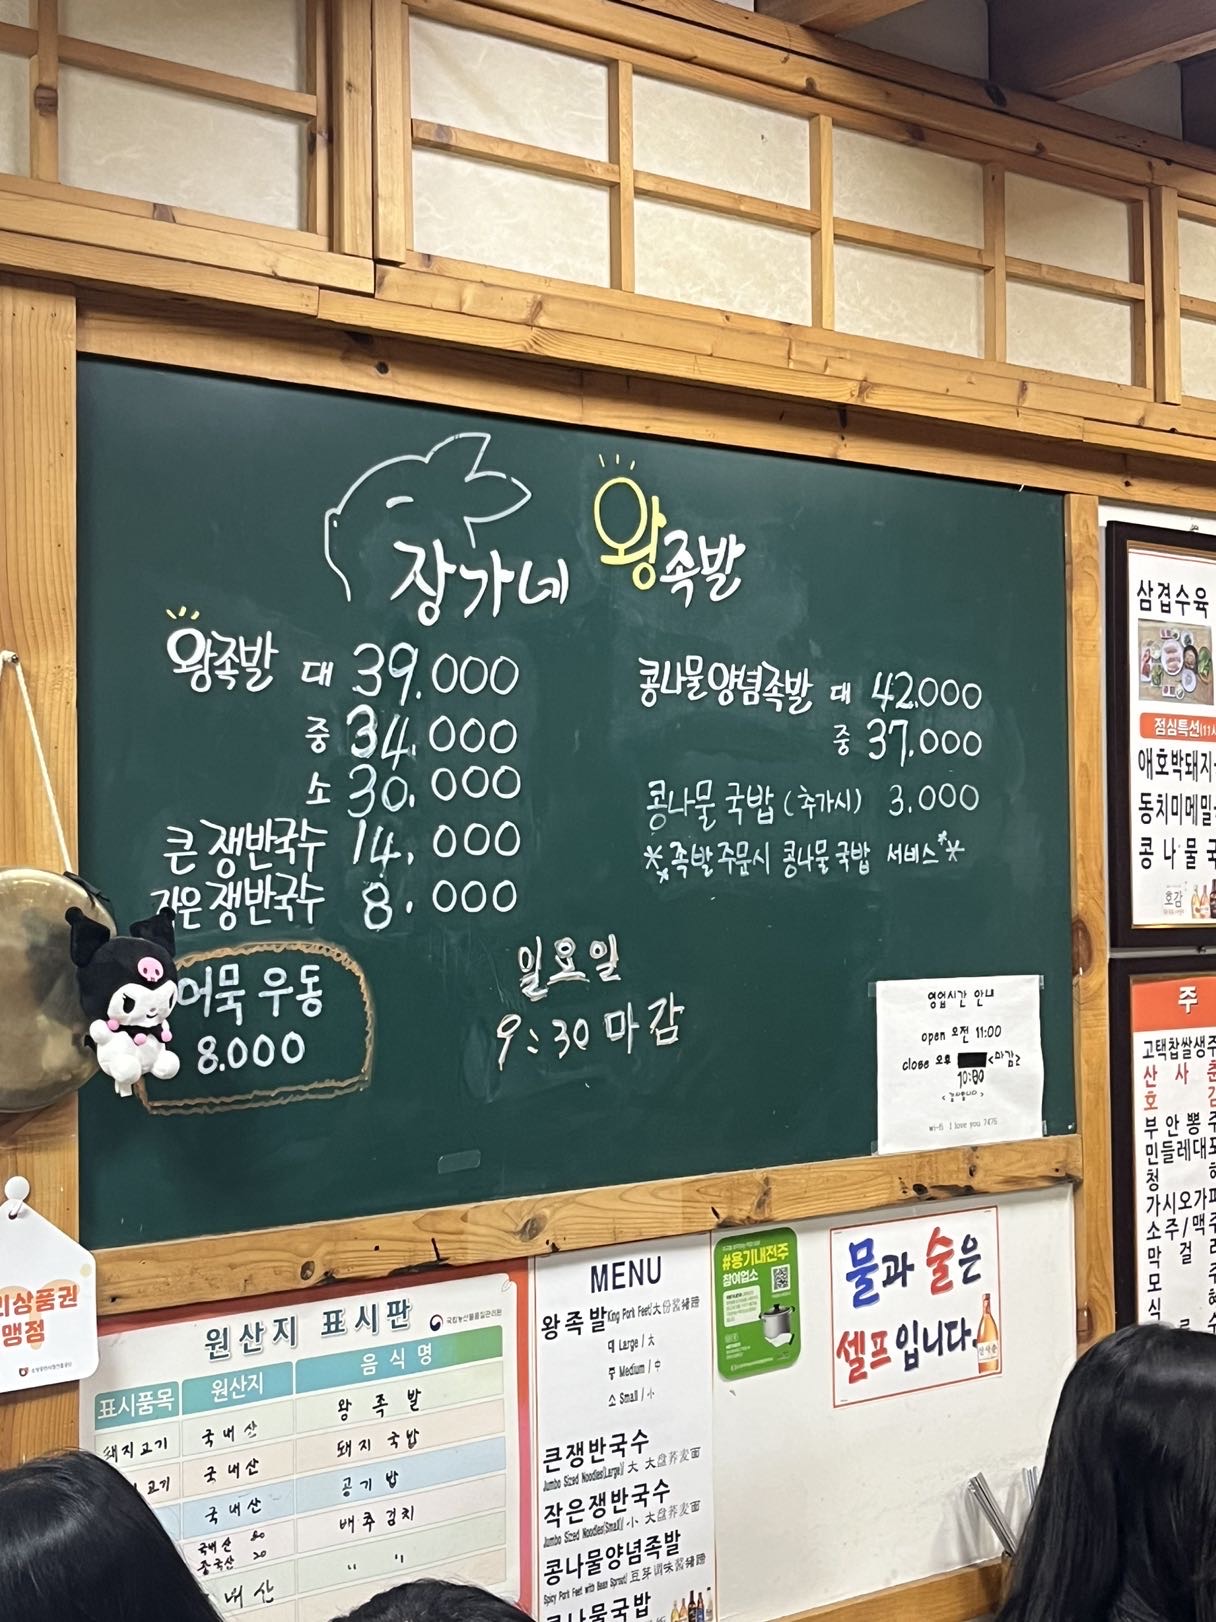 장가네 왕족발
왕족발 대 39.000
중 34.000
소 30.000
큰 쟁반국수 14.000
작은 쟁반국수 8.000
어묵 우동
8.000
콩나물양념족발 대 42.000
중 37.000
콩나물 국밥 (추가시) 3.000
*족발 주문시 콩나물 국밥 서비스*
일요일
9:30 마감
영업시간 안내
open 오전 11:00
close 오후 <마감>
10:00
<감사합니다>
wi-fi I love you 7475
삼겹수육
점심특선(11시
애호박돼지
동치미메밀
콩나물국
호감
주
고택찹쌀생주
산사춘
호감
부안뽕주
민들레대포
청하
가시오가피
소주/맥주
막걸리
모주
식혜
상품권
맹점
원산지 표시판
국립농산물품질관리원
표시품목 원산지 음식명
돼지고기 국내산 왕족발
고기 국내산 돼지 국밥
국내산 공기밥
국내산 80 배추김치
중국산 20
내산 " "
MENU
왕족발(King Pork Feet)
대 Large / 大
중 Medium / 中
소 Small / 小
큰쟁반국수
Jumbo Sized Noodles(Large)/ 大 大盘荞麦面
작은쟁반국수
Jumbo Sized Noodles(Small)/ 小 大盘荞麦面
콩나물양념족발
Spicy Pork Feet with Bean Sprout/
콩나물국밥
#용기내전주
참여업소
물과 술은
셀프입니다.